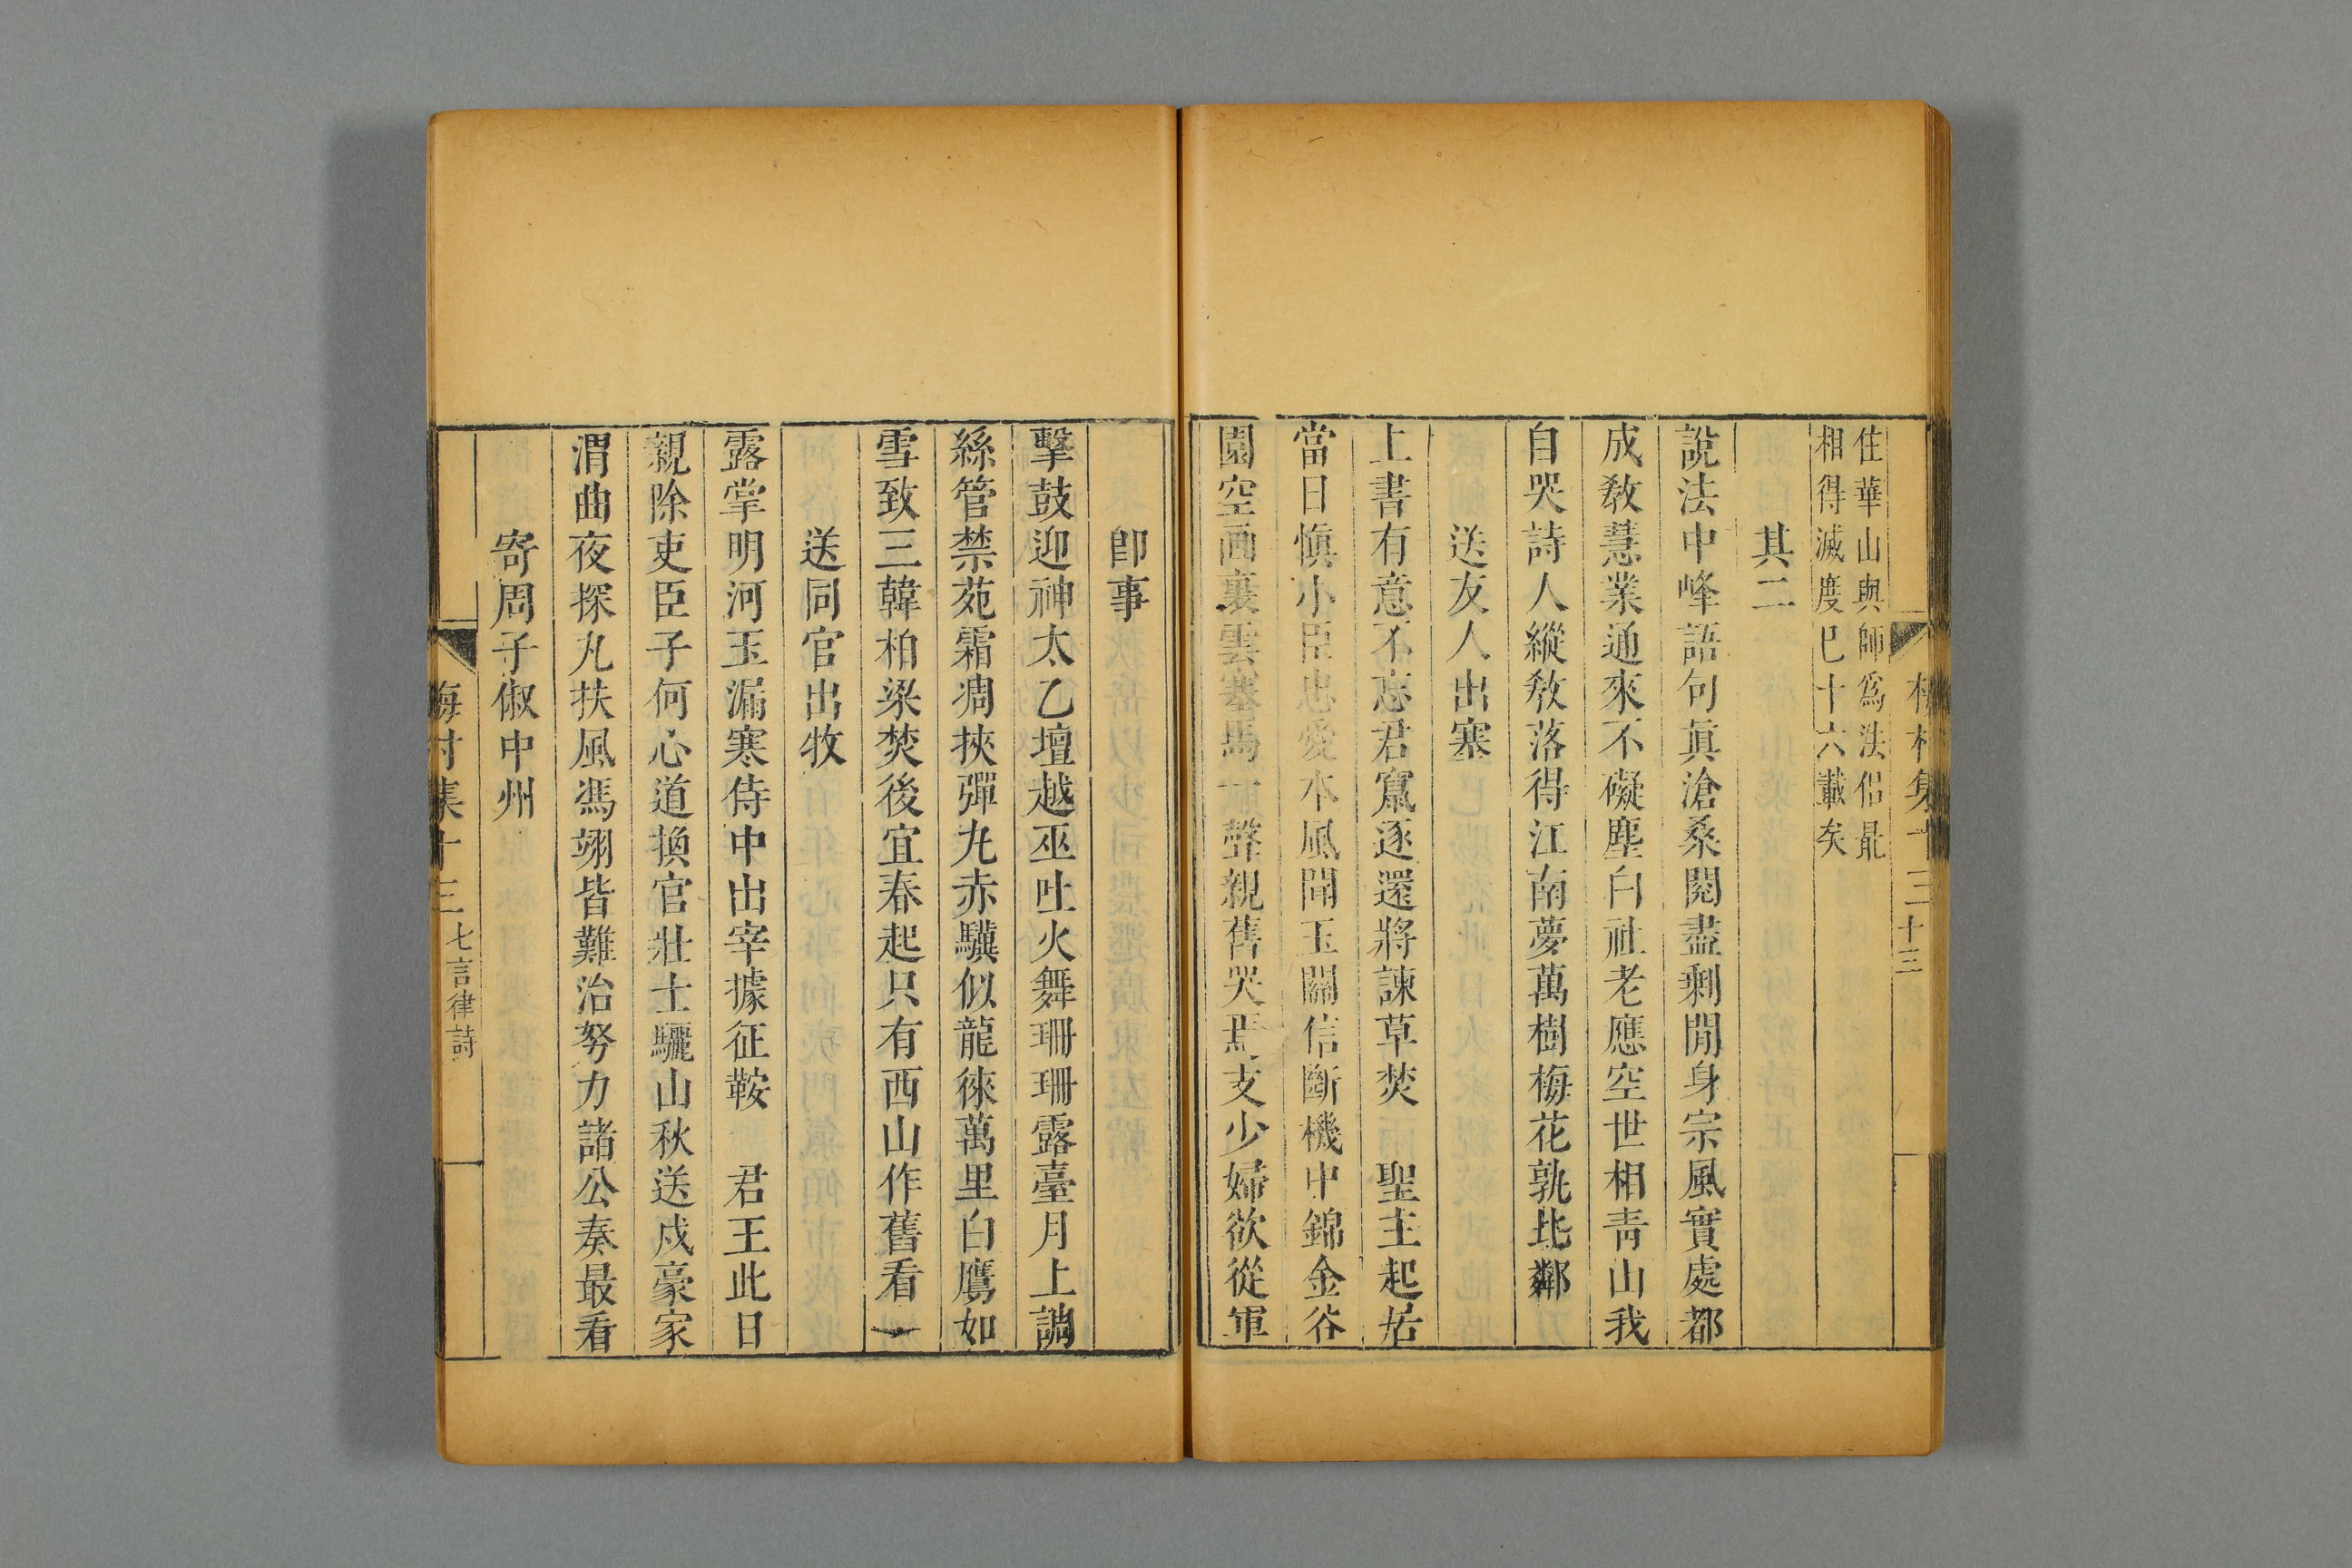 住華山與師爲法侶最
相得滅度已十六載矣
其二
說法中峰語句眞滄桑閱盡剩閒身宗風實處都
成敎慧業通來不礙塵白社老應空世相靑山我
自哭詩人縱敎落得江南夢萬樹梅花孰比鄰
送友人出塞
上書有意不忘君竄逐還將諫草焚 聖主起居
當日愼小臣忠愛本風聞玉關信斷機中錦金谷
園空画裏雲塞馬一聲親舊哭焉支少婦欲從軍
梅村集十三
十三
卽事
擊鼓迎神太乙壇越巫吐火舞珊珊露臺月上調
絲管禁苑霜凋挾彈丸赤驥似龍徠萬里白鷹如
雪致三韓柏梁焚後宜春起只有西山作舊看
送同官出牧
露掌明河玉漏寒侍中出宰據征鞍 君王此日
親除吏臣子何心道換官壯士驪山秋送戍豪家
渭曲夜探丸扶風馮翊皆難治努力諸公奏最看
寄周子俶中州
梅村集十三
七言律詩